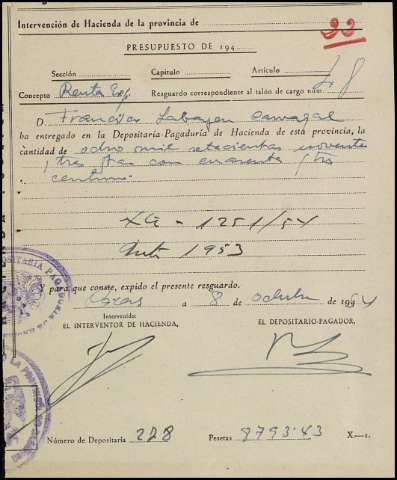 Intervención de Hacienda de la provincia de
33
PRESUPUESTO DE 194
Sección Capítulo Artículo
Concepto Renta Resguardo correspondiente al talón de cargo núm. 8
D. Francisco Labayen Carvajal
ha entregado en la Depositaría-Pagaduría de Hacienda de está provincia, la
cantidad de ocho mil setecientas noventa
y tres ptas con cuarenta y tres
centimos
1251/54
1953
Y para que conste, expido el presente resguardo.
a 8 de octubre de 1954
Intervenido:
EL INTERVENTOR DE HACIENDA, EL DEPOSITARIO-PAGADOR,
Número de Depositaría 228 Pesetas 8793'43 X—1.